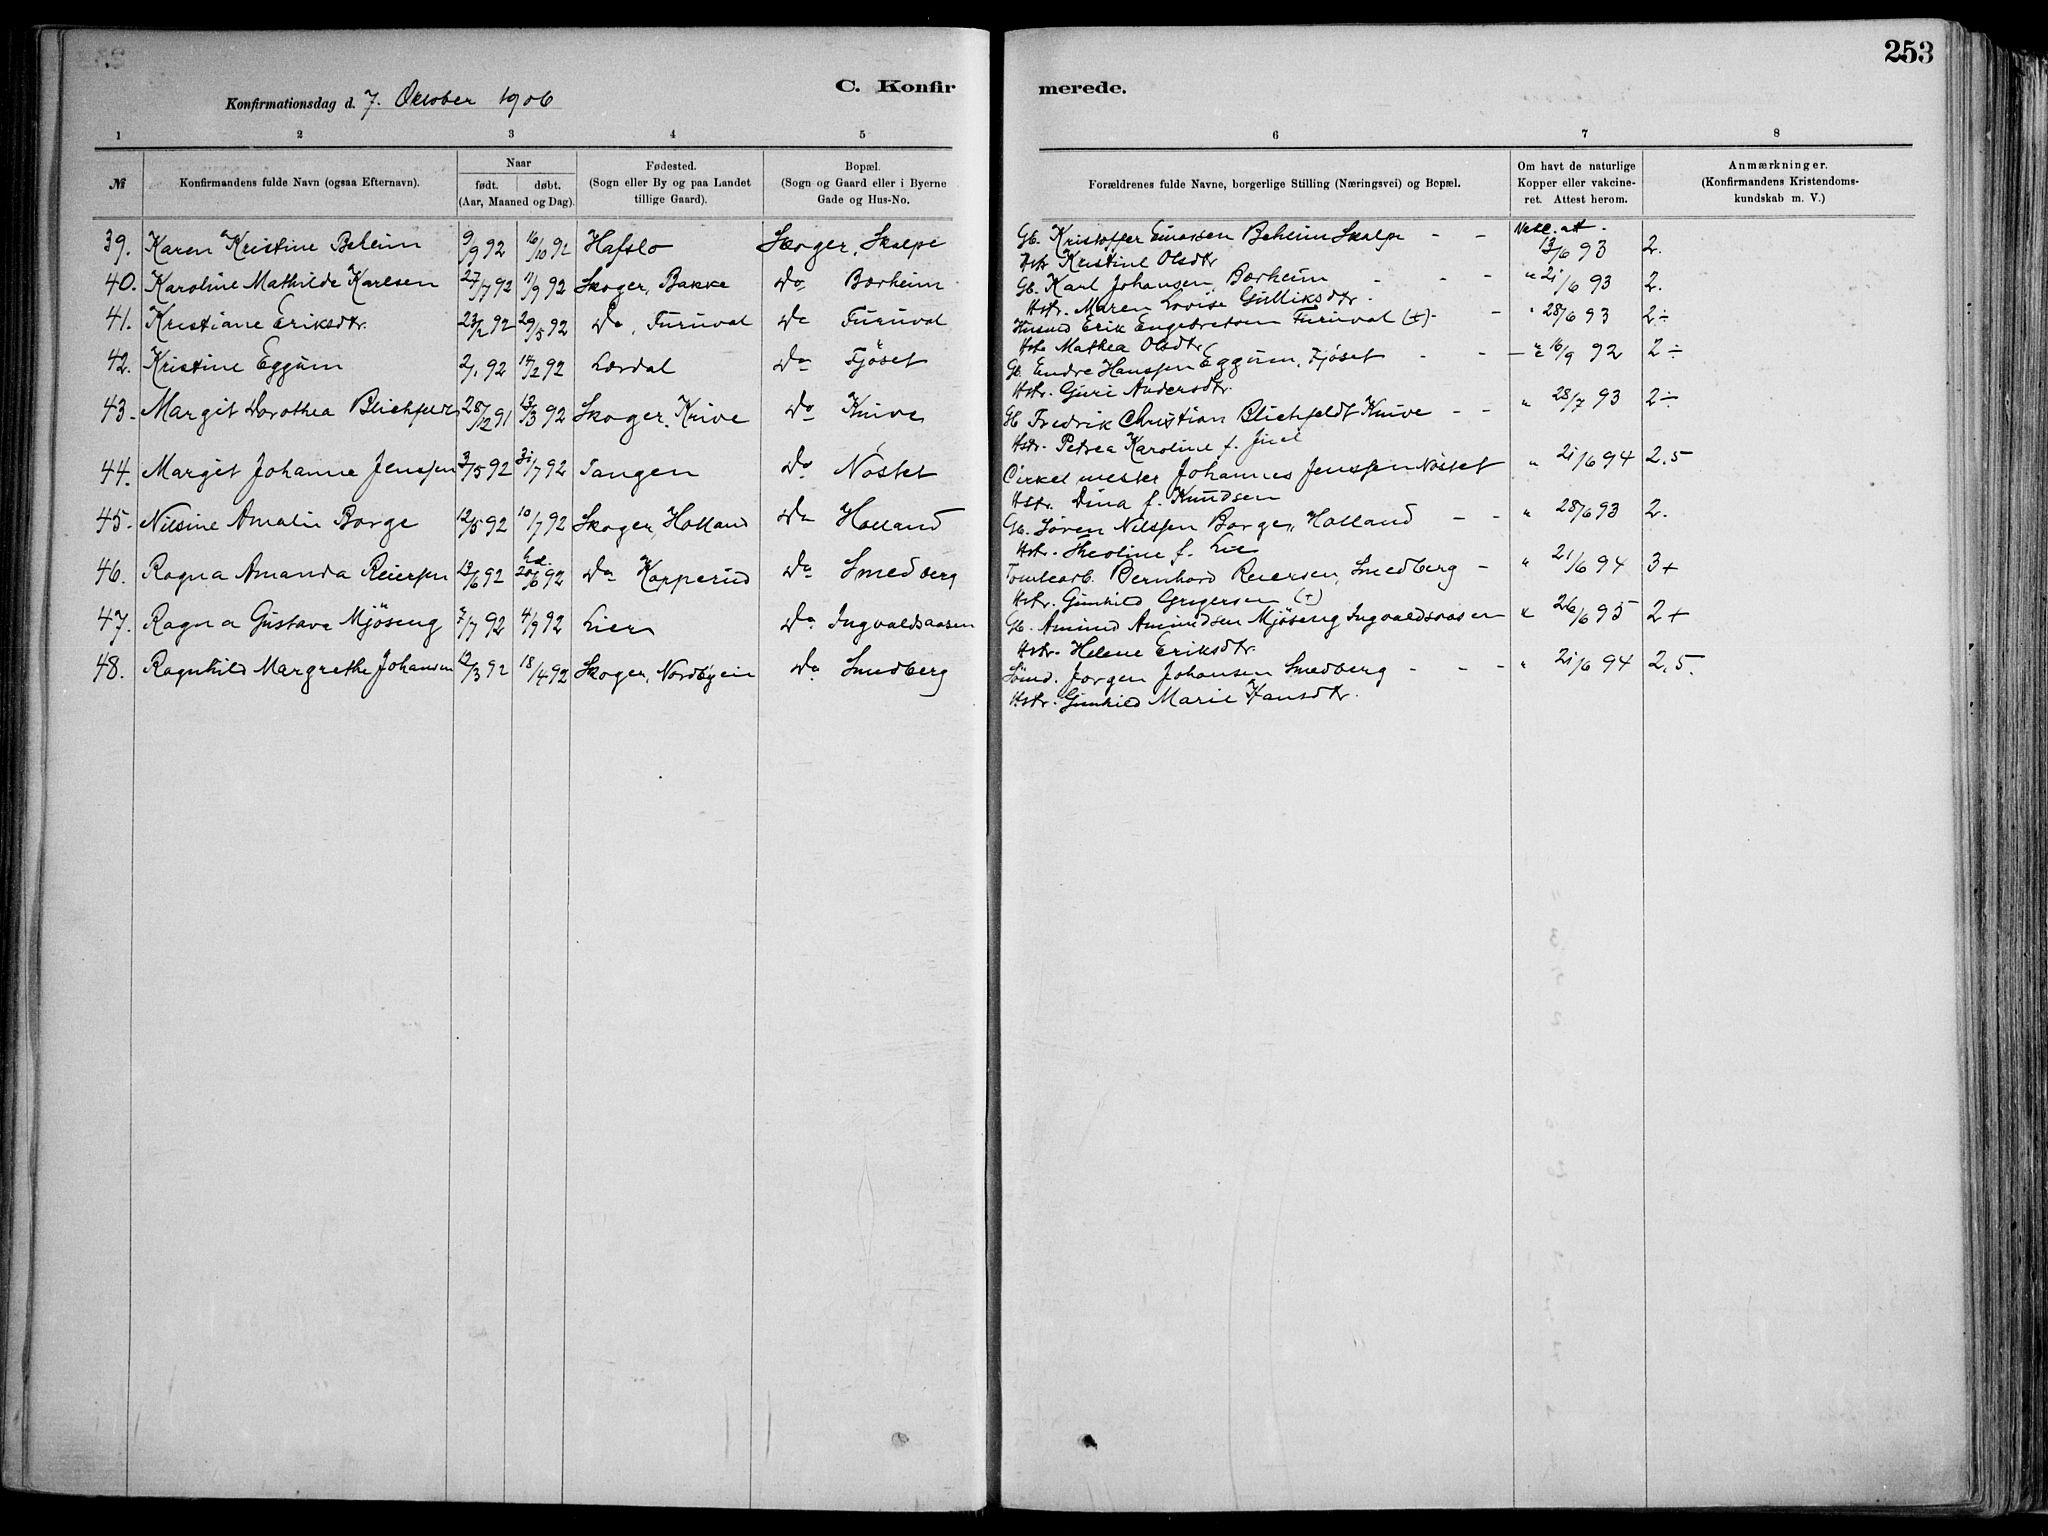 253
C. Konfirmerede.
Konfirmationsdag d. 7. Oktober 1906
1 2 3 4 5 6 7 8
№
Konfirmandens fulde Navn (ogsaa Efternavn).
Naar
født. døbt.
(Aar, Maaned og Dag).
Fødested.
(Sogn eller By og paa Landet
tillige Gaard).
Bopæl.
(Sogn og Gaard eller i Byerne
Gade og Hus-No.
Forældrenes fulde Navne, borgerlige Stilling (Næringsvei) og Bopæl.
Om havt de naturlige
Kopper eller vakcine-
ret. Attest herom.
Anmærkninger.
(Konfirmandens Kristendoms-
kundskab m. V.)
39. Karen Kristine Beheim 9/9 92 16/10 92 Hafslo Skoger, Skalpe Gb. Kristoffer Beheim Skalpe - - 13/6 93 2.
Hstr. Kristine Olsdtr
40. Karoline Mathilde Karlsen 27/7 92 11/9 92 Skoger, Bakke Do Borheim Gb. Karl Johansen Borheim - - - " 21/6 93 2.
Hstr. Maren Lovise Gulliksdtr.
41. Kristiane Eriksdtr. 23/2 92 29/5 92 Do, Furuval Do Furuval Husmd Erik Engebretsen Furuval (+) - - " 28/6 93 2÷
Hstr Mathea Olsdtr
42. Kristine Eggum 2/1 92 14/2 92 Lærdal Do Fjøset Gb. Endre Hanssen Eggum, Fjøset - - - " 16/9 92 2÷
Hstr. Guri Andersdtr.
43. Margit Dorothea Blichfeldt 28/12 91 13/3 92 Skoger, Knive Do Knive Gb Fredrik Christian Blichfeldt Knive - - " 28/7 93 2÷
Hstr. Petrea Karoline f. Juel
44. Margit Johanne Jenssen 3/5 92 31/7 92 Tangen Do Nøstet Cirkelmester Johannes Jenssen Nøstet " 21/6 94 2.5
Hstr. Dina f. Knudsen
45. Nilsine Amalie Borge 12/5 92 10/7 92 Skoger, Holland Do Holland Gb. Søren Nilssen Borge, Holland - - " 28/6 93 2.
Hstr. Theoline f. Lie
46. Ragna Amanda Reiersen 13/6 92 hd. 20/6 92 Do Kopperud Do Smedberg Tomtearb. Bernhard Reiersen, Smedberg - " 21/6 94 3+
Hstr. Gunhild Gregersen (+)
47. Ragna Gustava Mjøseng 7/7 92 4/9 92 Lier Do Ingvaldsaasen Gb. Amund Amundsen Mjøseng Ingvaldsaasen " 26/6 95 2+
Hstr. Helene Eriksdtr.
48. Ragnhild Margrethe Johansen 12/3 92 18/4 92 Skoger, Nordbyein Do Smedberg Jørgen Johansen Smedberg - - - " 21/6 94 2,5.
Hstr. Gunhild Marie Hansdtr.